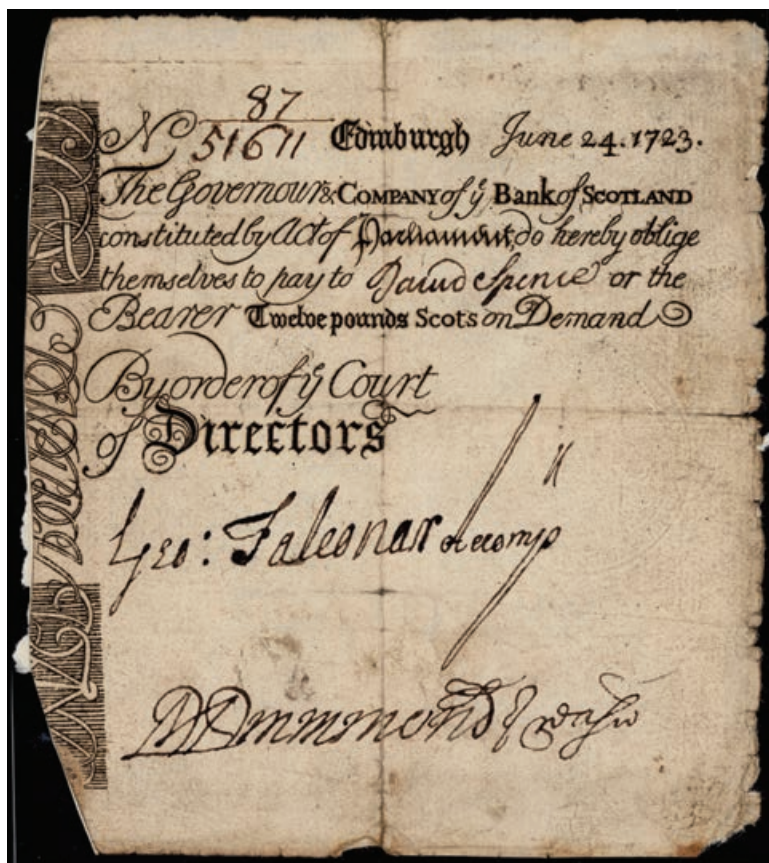 87
No 51611 Edinburgh June 24. 1723.
The Governour & COMPANY of ye Bank of SCOTLAND
constituted by Act of Parliament, do hereby oblige
themselves to pay to David Spence or the
Bearer Twelve pounds Scots on Demand
By order of ye Court
of Directors
Geo: Falconar Accomp
D Drummond Treasr